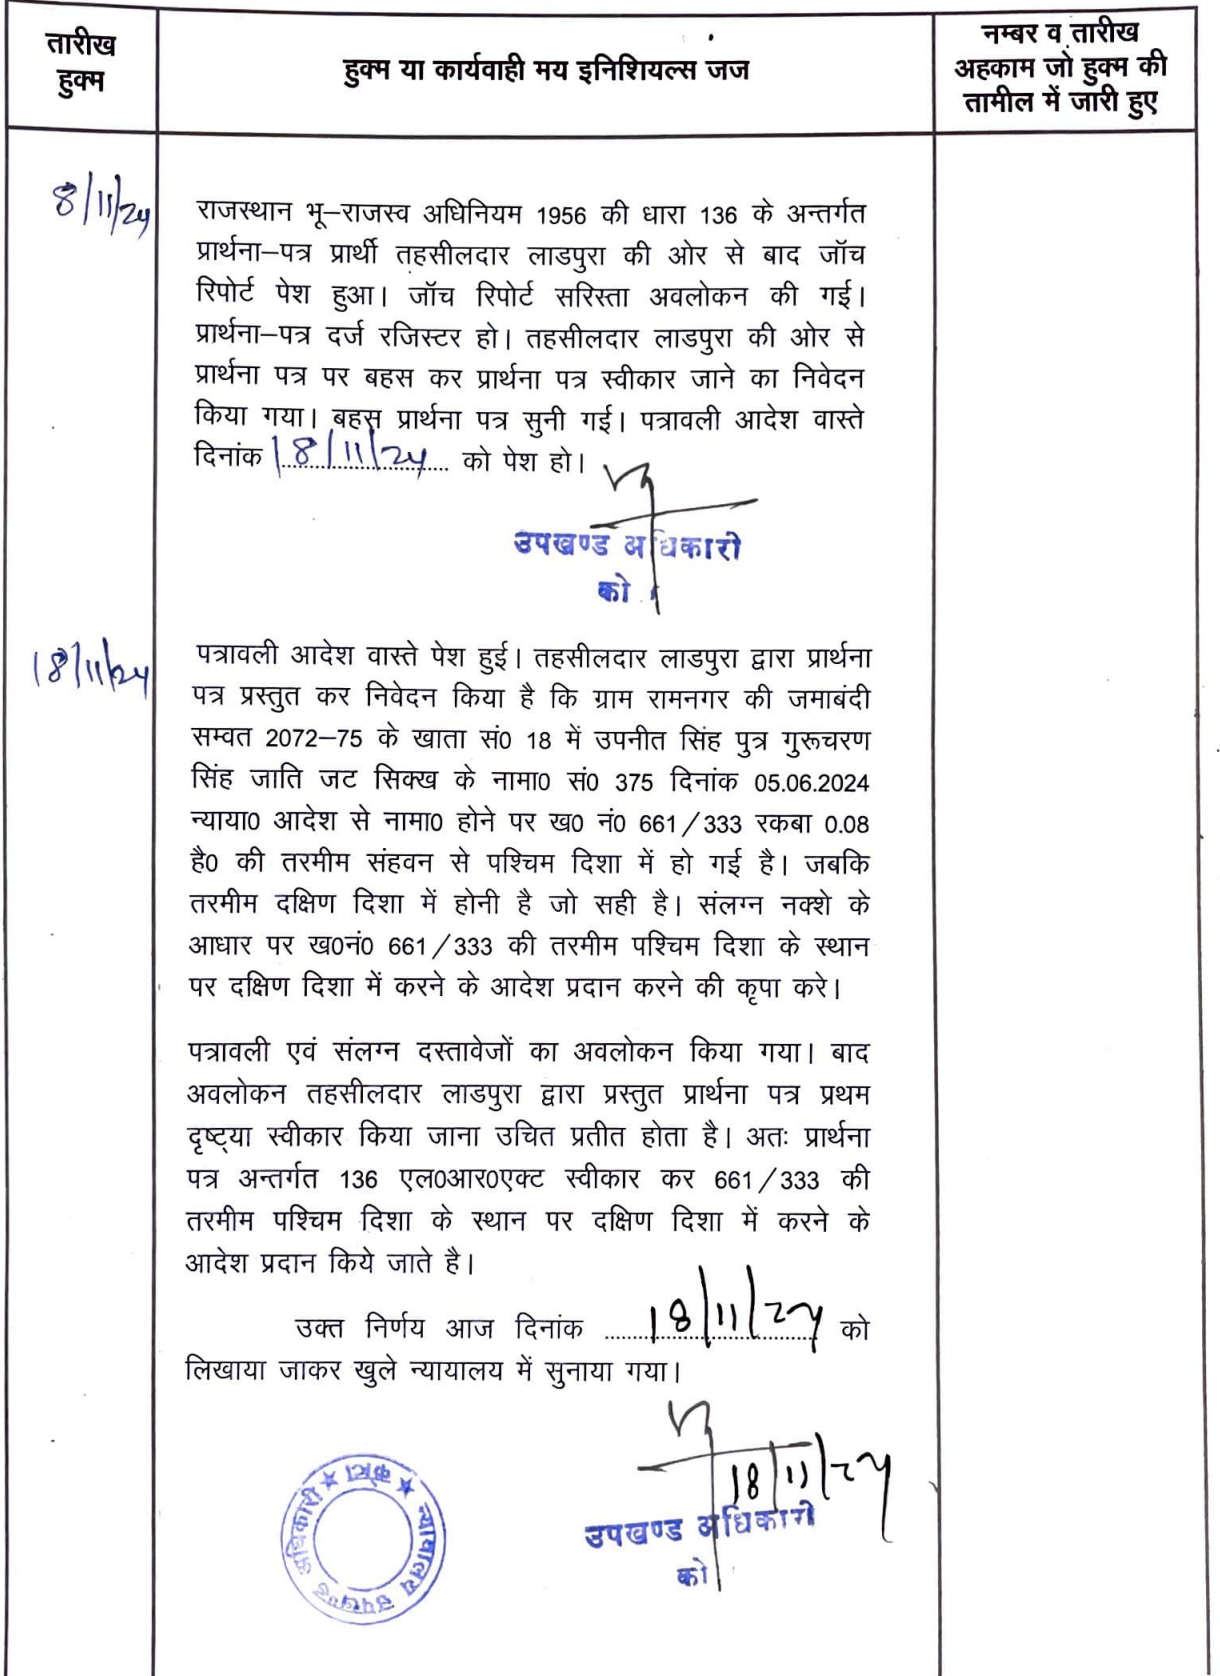 तारीख
हुक्म
हुक्म या कार्यवाही मय इनिशियल्स जज
नम्बर व तारीख
अहकाम जो हुक्म की
तामील में जारी हुए
8/11/24
राजस्थान भू–राजस्व अधिनियम 1956 की धारा 136 के अन्तर्गत
प्रार्थना–पत्र प्रार्थी तहसीलदार लाडपुरा की ओर से बाद जॉच
रिपोर्ट पेश हुआ। जॉच रिपोर्ट सरिस्ता अवलोकन की गई।
प्रार्थना–पत्र दर्ज रजिस्टर हो। तहसीलदार लाडपुरा की ओर से
प्रार्थना पत्र पर बहस कर प्रार्थना पत्र स्वीकार जाने का निवेदन
किया गया। बहस प्रार्थना पत्र सुनी गई। पत्रावली आदेश वास्ते
दिनांक 18/11/24 को पेश हो।
उपखण्ड अधिकारी
को
18/11/24
पत्रावली आदेश वास्ते पेश हुई। तहसीलदार लाडपुरा द्वारा प्रार्थना
पत्र प्रस्तुत कर निवेदन किया है कि ग्राम रामनगर की जमाबंदी
सम्वत 2072–75 के खाता सं0 18 में उपनीत सिंह पुत्र गुरूचरण
सिंह जाति जट सिक्ख के नामा0 सं0 375 दिनांक 05.06.2024
न्याया0 आदेश से नामा0 होने पर ख0 नं0 661/333 रकबा 0.08
है0 की तरमीम संहवन से पश्चिम दिशा में हो गई है। जबकि
तरमीम दक्षिण दिशा में होनी है जो सही है। संलग्न नक्शे के
आधार पर ख0नं0 661/333 की तरमीम पश्चिम दिशा के स्थान
पर दक्षिण दिशा में करने के आदेश प्रदान करने की कृपा करे।
पत्रावली एवं संलग्न दस्तावेजों का अवलोकन किया गया। बाद
अवलोकन तहसीलदार लाडपुरा द्वारा प्रस्तुत प्रार्थना पत्र प्रथम
दृष्ट्या स्वीकार किया जाना उचित प्रतीत होता है। अतः प्रार्थना
पत्र अन्तर्गत 136 एल0आर0एक्ट स्वीकार कर 661/333 की
तरमीम पश्चिम दिशा के स्थान पर दक्षिण दिशा में करने के
आदेश प्रदान किये जाते है।
उक्त निर्णय आज दिनांक 18/11/24 को
लिखाया जाकर खुले न्यायालय में सुनाया गया।
18/11/24
उपखण्ड अधिकारी
को
न्यायालय उपखण्ड अधिकारी ★ कोटा ★